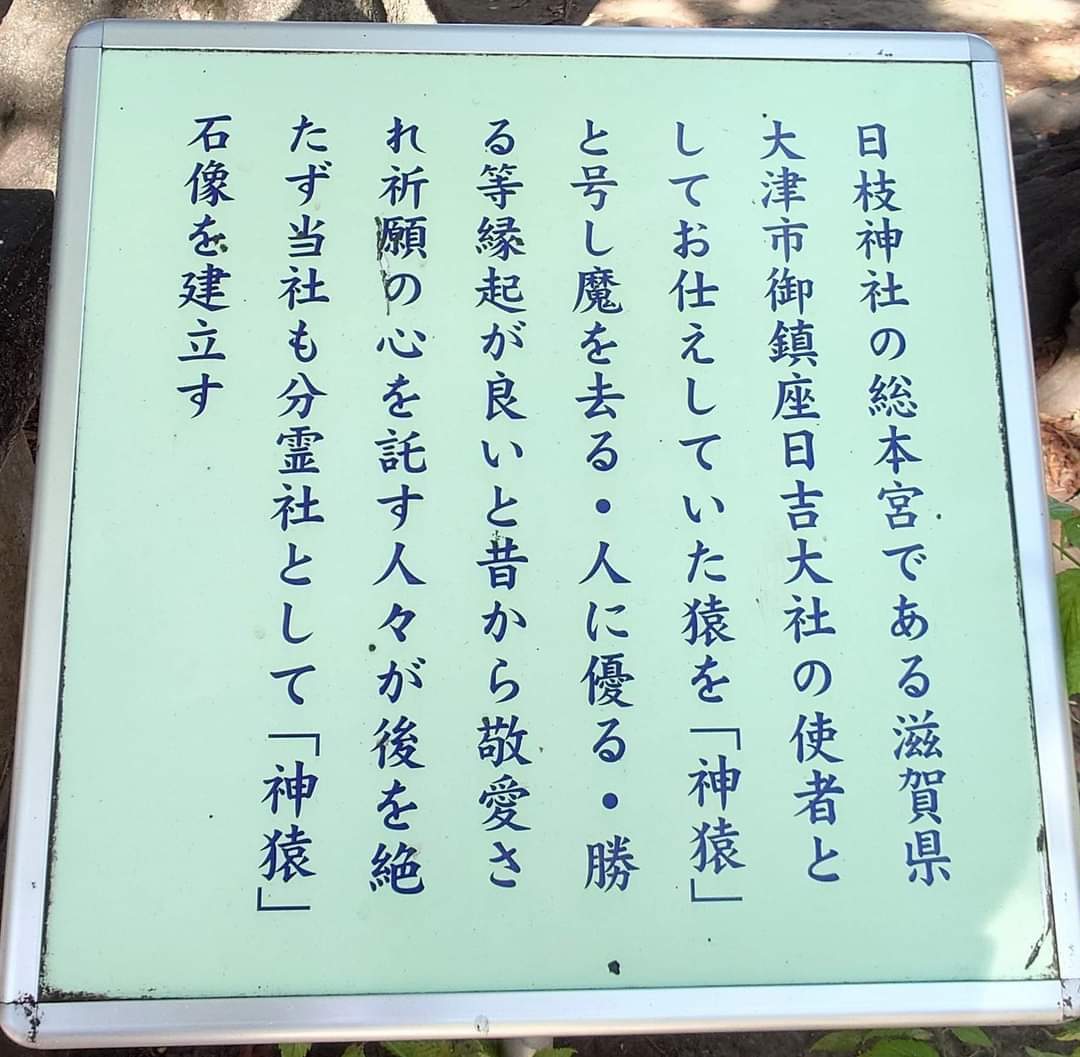 日枝神社の総本宮である滋賀県
大津市御鎮座日吉大社の使者と
してお仕えしていた猿を「神猿」
と号し魔を去る・人に優る・勝
る等縁起が良いと昔から敬愛さ
れ祈願の心を託す人々が後を絶
たず当社も分霊社として「神猿」
石像を建立す